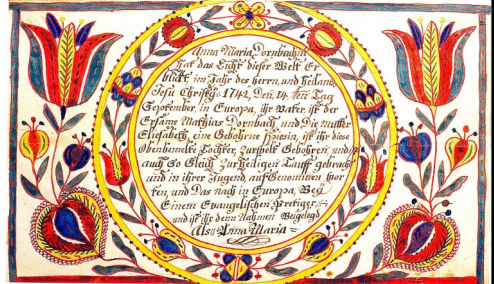 Anna Maria Dornbachin
hat das Licht dieser Welt Er
blickt im Jahr des herrn, und heilands
Jesu Christy: 1742, den 14ten Tag
September, in Europa, ihr Vater, ist der
Ersame Mathias Dornbach, und Die mutter
Elisabeth, eine Gebohrne, ist ihr diese
Obenbemelte Tochter, zur welt Gebohren, und
auch So Gleich Zur heiligen Tauff gebracht
und in ihrer Jugend, auf Genommen wor
ten, und Das nach in Europa, Bey
Einem Evangelischen Pretiger,
und ist ihr denn Nahmen Beigelegd
Als Anna Maria